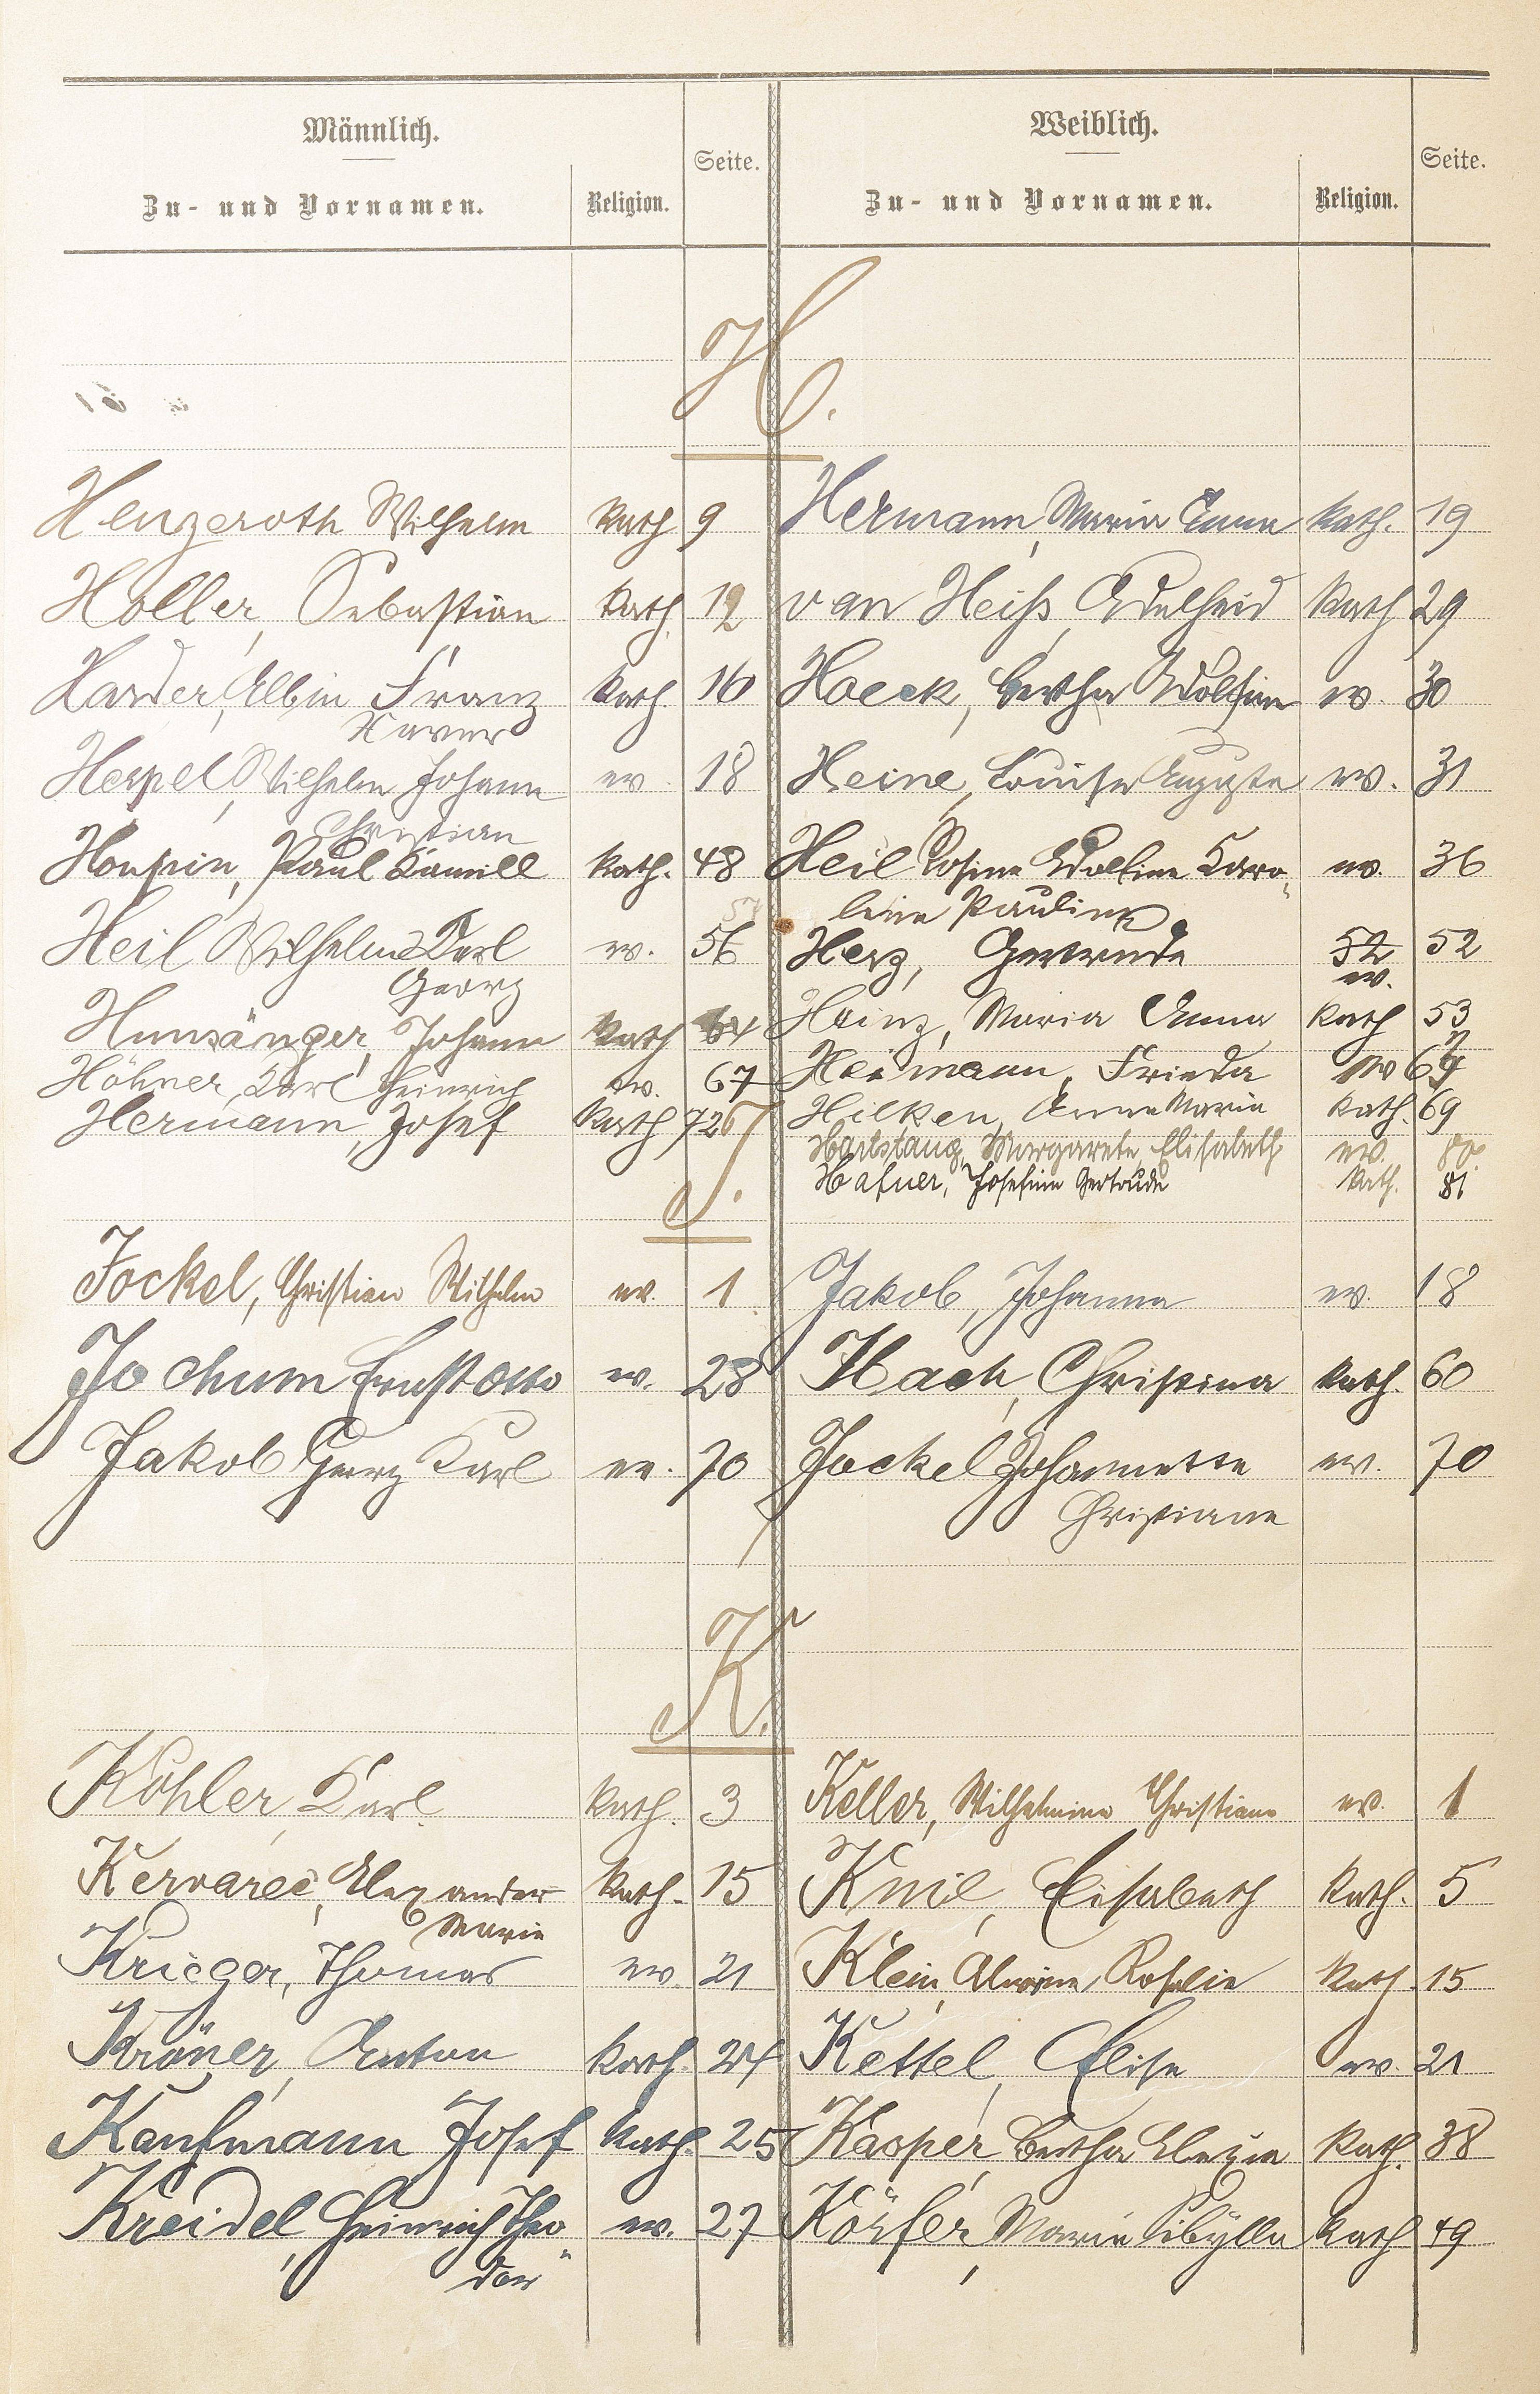 Männlich.
Zu- und Vornamen.
Religion.
Seite.
Weiblich.
Zu- und Vornamen.
Religion.
Seite.
H.
Henzeroth Wilhelm kath. 9
Holler, Sebastian kath. 12
Harder, Albin Franz kath. 16
Xaver
Heppel, Wilhelm Johann ev. 18
Christian
Houpin, Paul Camill kath. 48
Heil Wilhelm Karl ev. 56
Georg
Hunsänger, Johann kath 64
Höhner, Karl Heinrich ev. 67
Hermann, Josef kath 72
Hermann, Maria Anna kath. 19
van Heiß, Adelheid kath 29
Hoeck, Bertha Adolfine ev. 30
Heine, Louise Auguste ev. 31
Heil Rosine Adolfine Karo- ev. 36
line Pauline
Herz, Gertrude 52 52
ev.
Heinz, Maria Anna kath 53
Heimann, Frieda ev
Hilken, Anna Maria kath. 69
Hartstang, Margarete Elisabeth ev. 80
Hafner, Josefine Gertrude kath. 81
J.
Jockel, Christian Wilhelm ev. 1
Jochum Ernst Otto ev. 28
Jakob Georg Karl ev. 70
Jakob, Johanna ev. 18
Christina kath. 60
Jockel Johannette ev. 70
Christiane
K.
Köhler, Karl kath. 3
Kervarec, Alexander kath. 15
Marie
Krieger, Thomas ev. 21
Kröner, Anton kath. 24
Kaufmann Josef kath. 25
Kreidel, Heinrich Theo- ev. 27
dor
Keller, Wilhelmine Christiane ev. 1
Knie, Elisabeth kath. 5
Klein, Alwine Rosalie kath. 15
Kettel, Elise ev. 21
Kasper, Bertha kath. 38
Körfer, Maria Sibylla kath 49